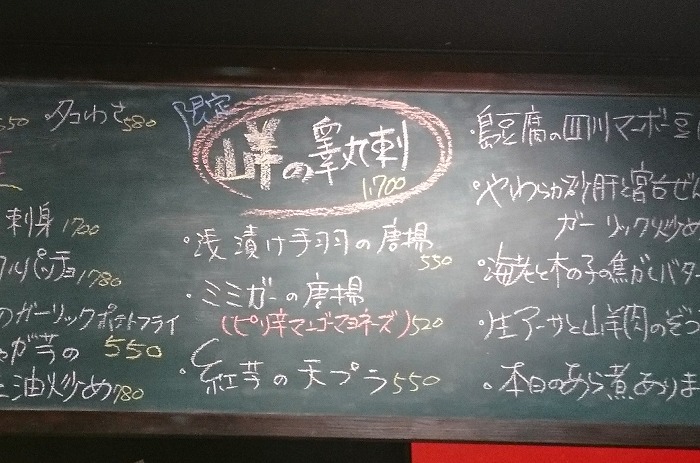 550
・タコわさ580
刺身1700
ルパッチョ1780
のガーリックポテトフライ
が芋の 550
油炒め780
限定
山羊の睾丸刺
1,700
・浅漬け手羽の唐揚
550
・ミミガーの唐揚
(ピリ辛マンゴーマヨネーズ)520
・紅芋の天プラ550
・島豆腐の四川マーボー豆
・やわらか砂肝と宮古ぜ
ガーリック炒め
・海老と木の子の焦がしバター
・生アーサと山羊肉のぞう
・本日のあら煮ありま